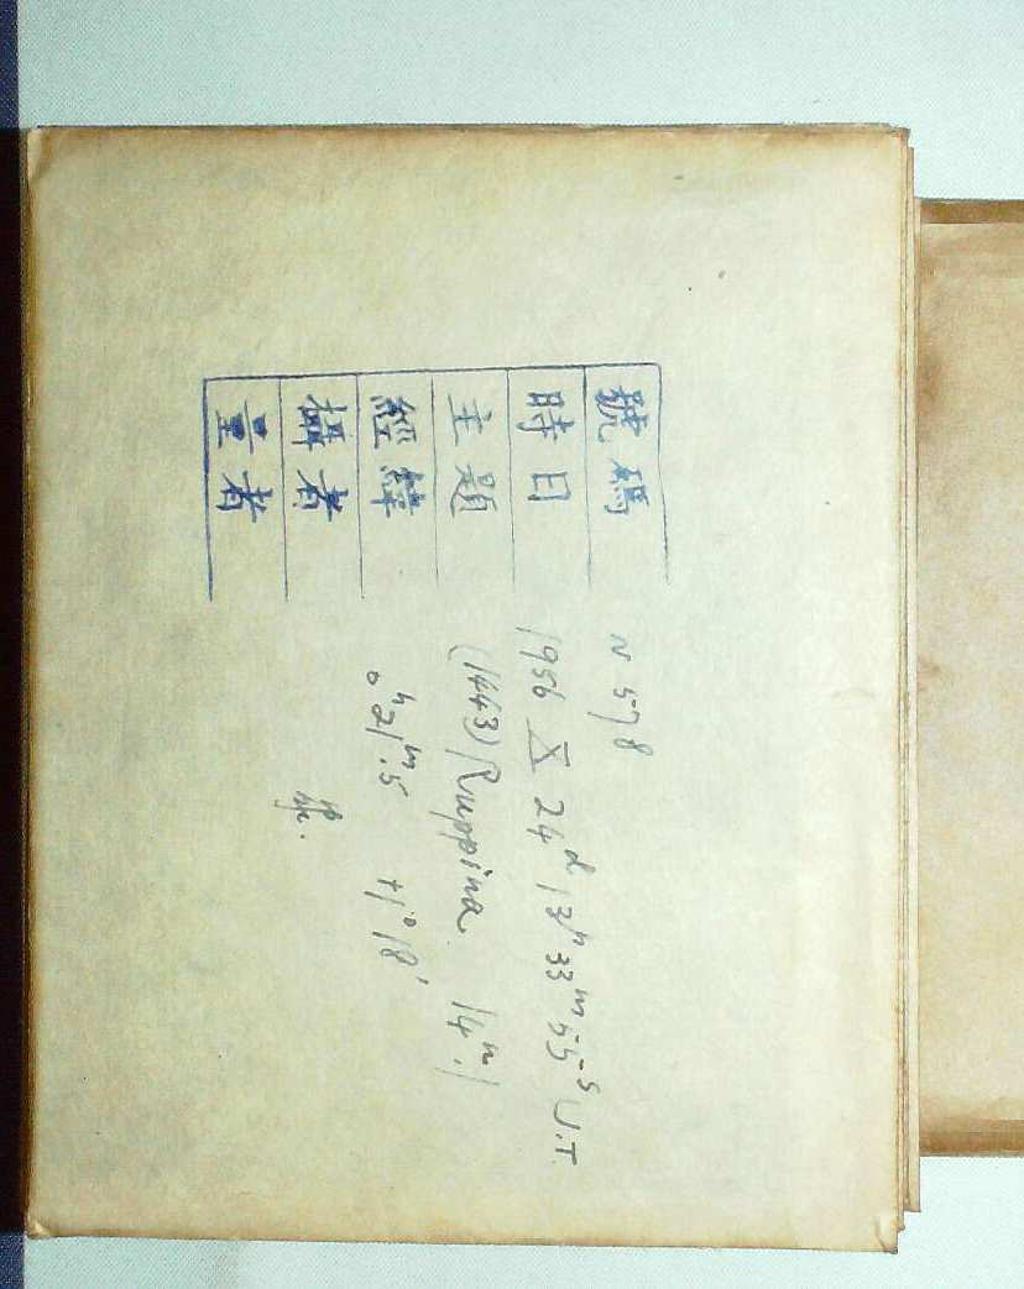 號碼 N 578
時日 1956 X 24ᵈ 13ʰ 33ᵐ 55ˢ U.T.
主題 (1443) Ruppina. 14ᵐ.1
經緯 0ʰ21ᵐ.5 +1°18'
攝者
量者